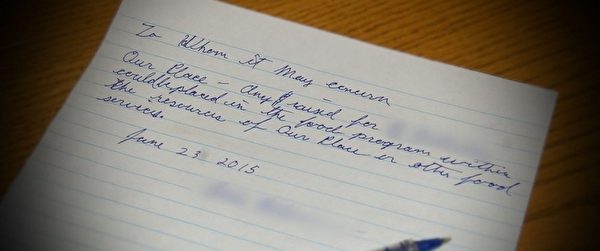 To Whom it May concern
Our Place - any $ raised for
could be placed in the food program within
the resources of Our Place or other food
services.
June 23 2015